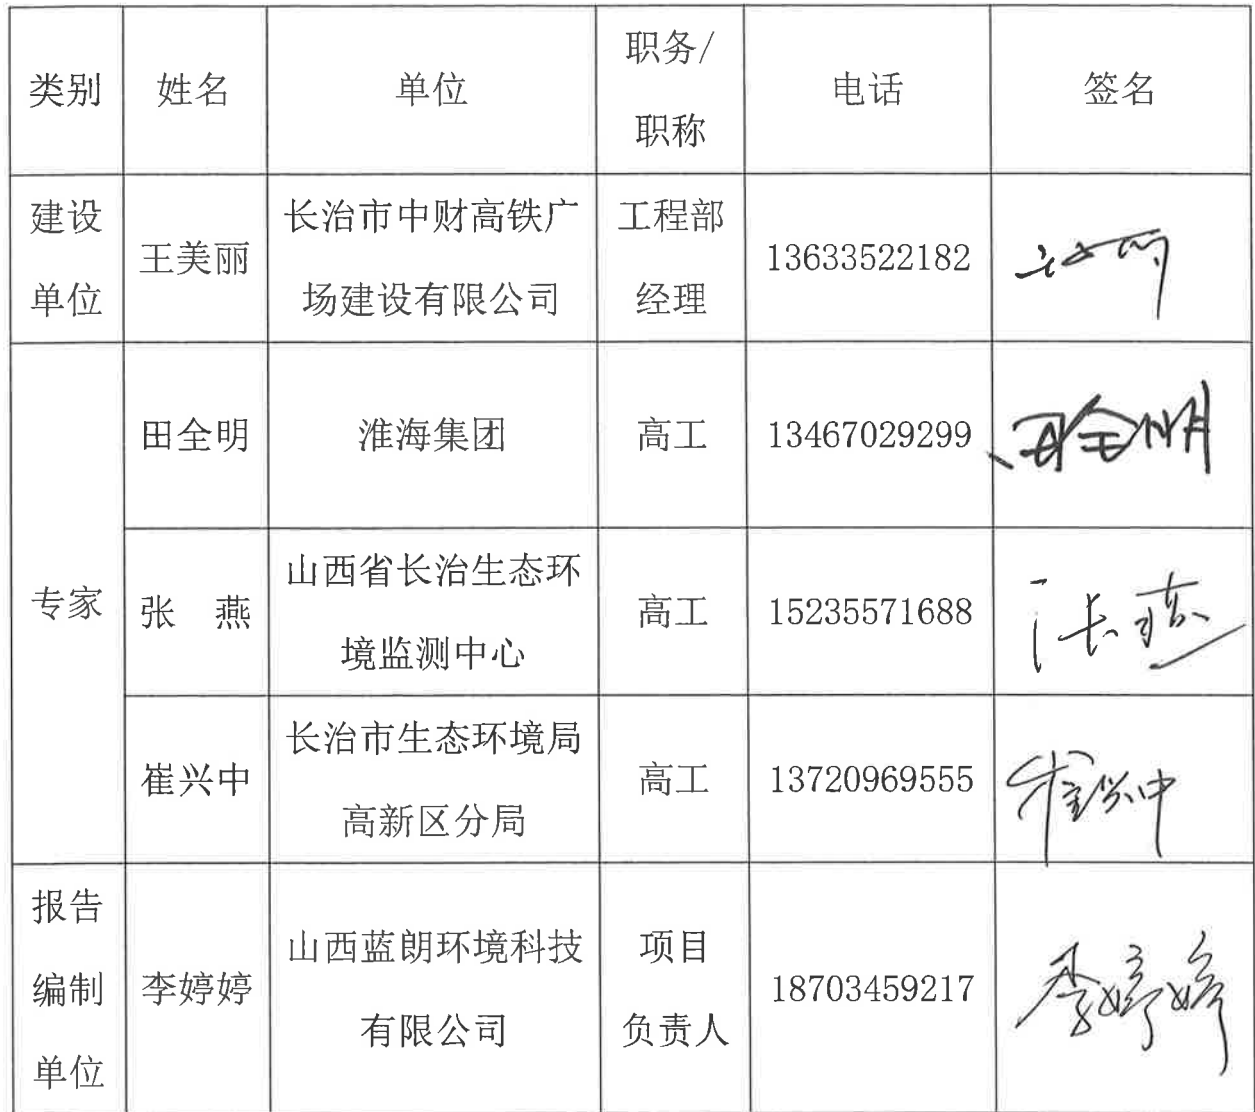 类别 姓名 单位 职务/ 电话 签名
职称
建设
单位
王美丽
长治市中财高铁广
场建设有限公司
工程部
经理
13633522182
专家
田全明 淮海集团 高工 13467029299 田全明
张 燕
山西省长治生态环
境监测中心
高工
15235571688
张燕
崔兴中
长治市生态环境局
高新区分局
高工
13720969555
崔兴中
报告
编制
单位
李婷婷
山西蓝朗环境科技
有限公司
项目
负责人
18703459217
李婷婷